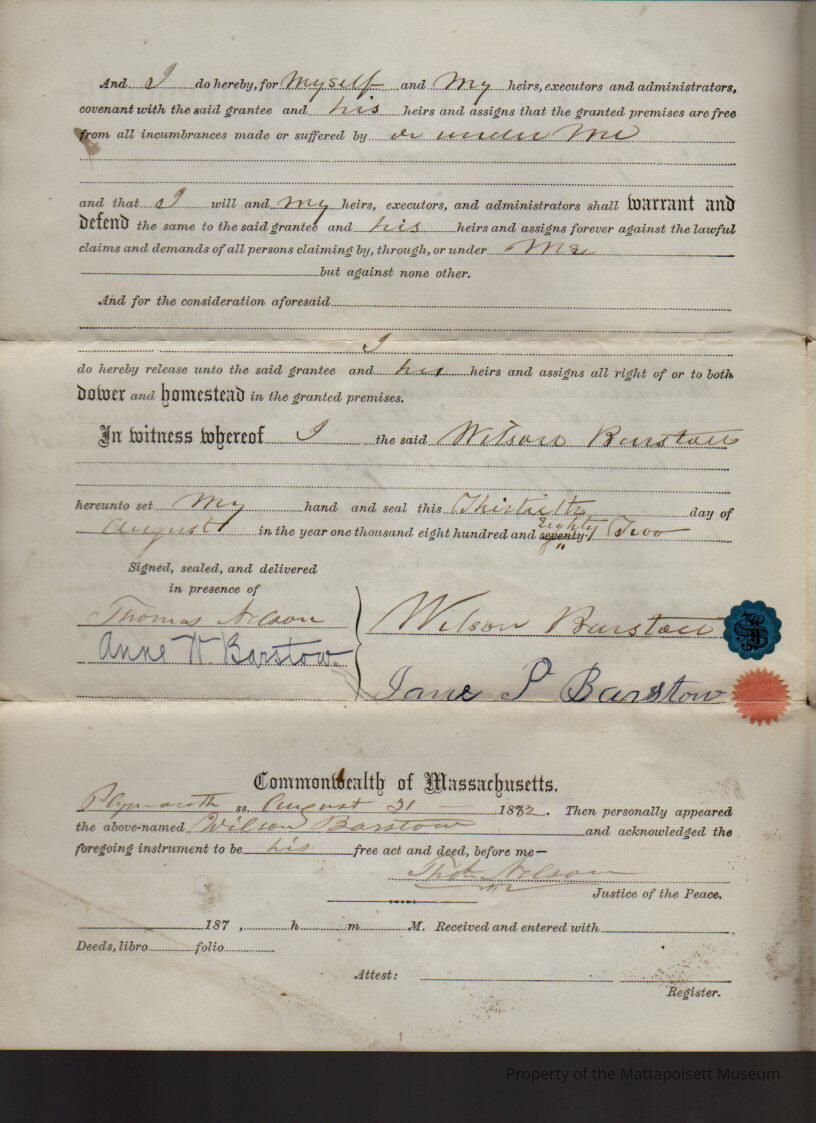 And I do hereby, for myself and my heirs, executors and administrators,
covenant with the said grantee and his heirs and assigns that the granted premises are free
from all incumbrances made or suffered by or under me
and that I will and my heirs, executors, and administrators shall warrant and
defend the same to the said grantee and his heirs and assigns forever against the lawful
claims and demands of all persons claiming by, through, or under Me
but against none other.
And for the consideration aforesaid
I
do hereby release unto the said grantee and his heirs and assigns all right of or to both
dower and homestead in the granted premises.
In witness whereof I the said Wilson Barstow
hereunto set my hand and seal this Thirtieth day of
August in the year one thousand eight hundred and seventy Eighty Two
Signed, sealed, and delivered
in presence of
Thomas Nelson
Wilson Barstow
Anne W Barstow
Jane P Barstow
Commonwealth of Massachusetts.
Plymouth ss. August 31 1882. Then personally appeared
the above-named Wilson Barstow and acknowledged the
foregoing instrument to be his free act and deed, before me—
Thos Nelson
Justice of the Peace.
187 , h m M. Received and entered with
Deeds, libro folio
Attest:
Register.
Property of the Mattapoisett Museum